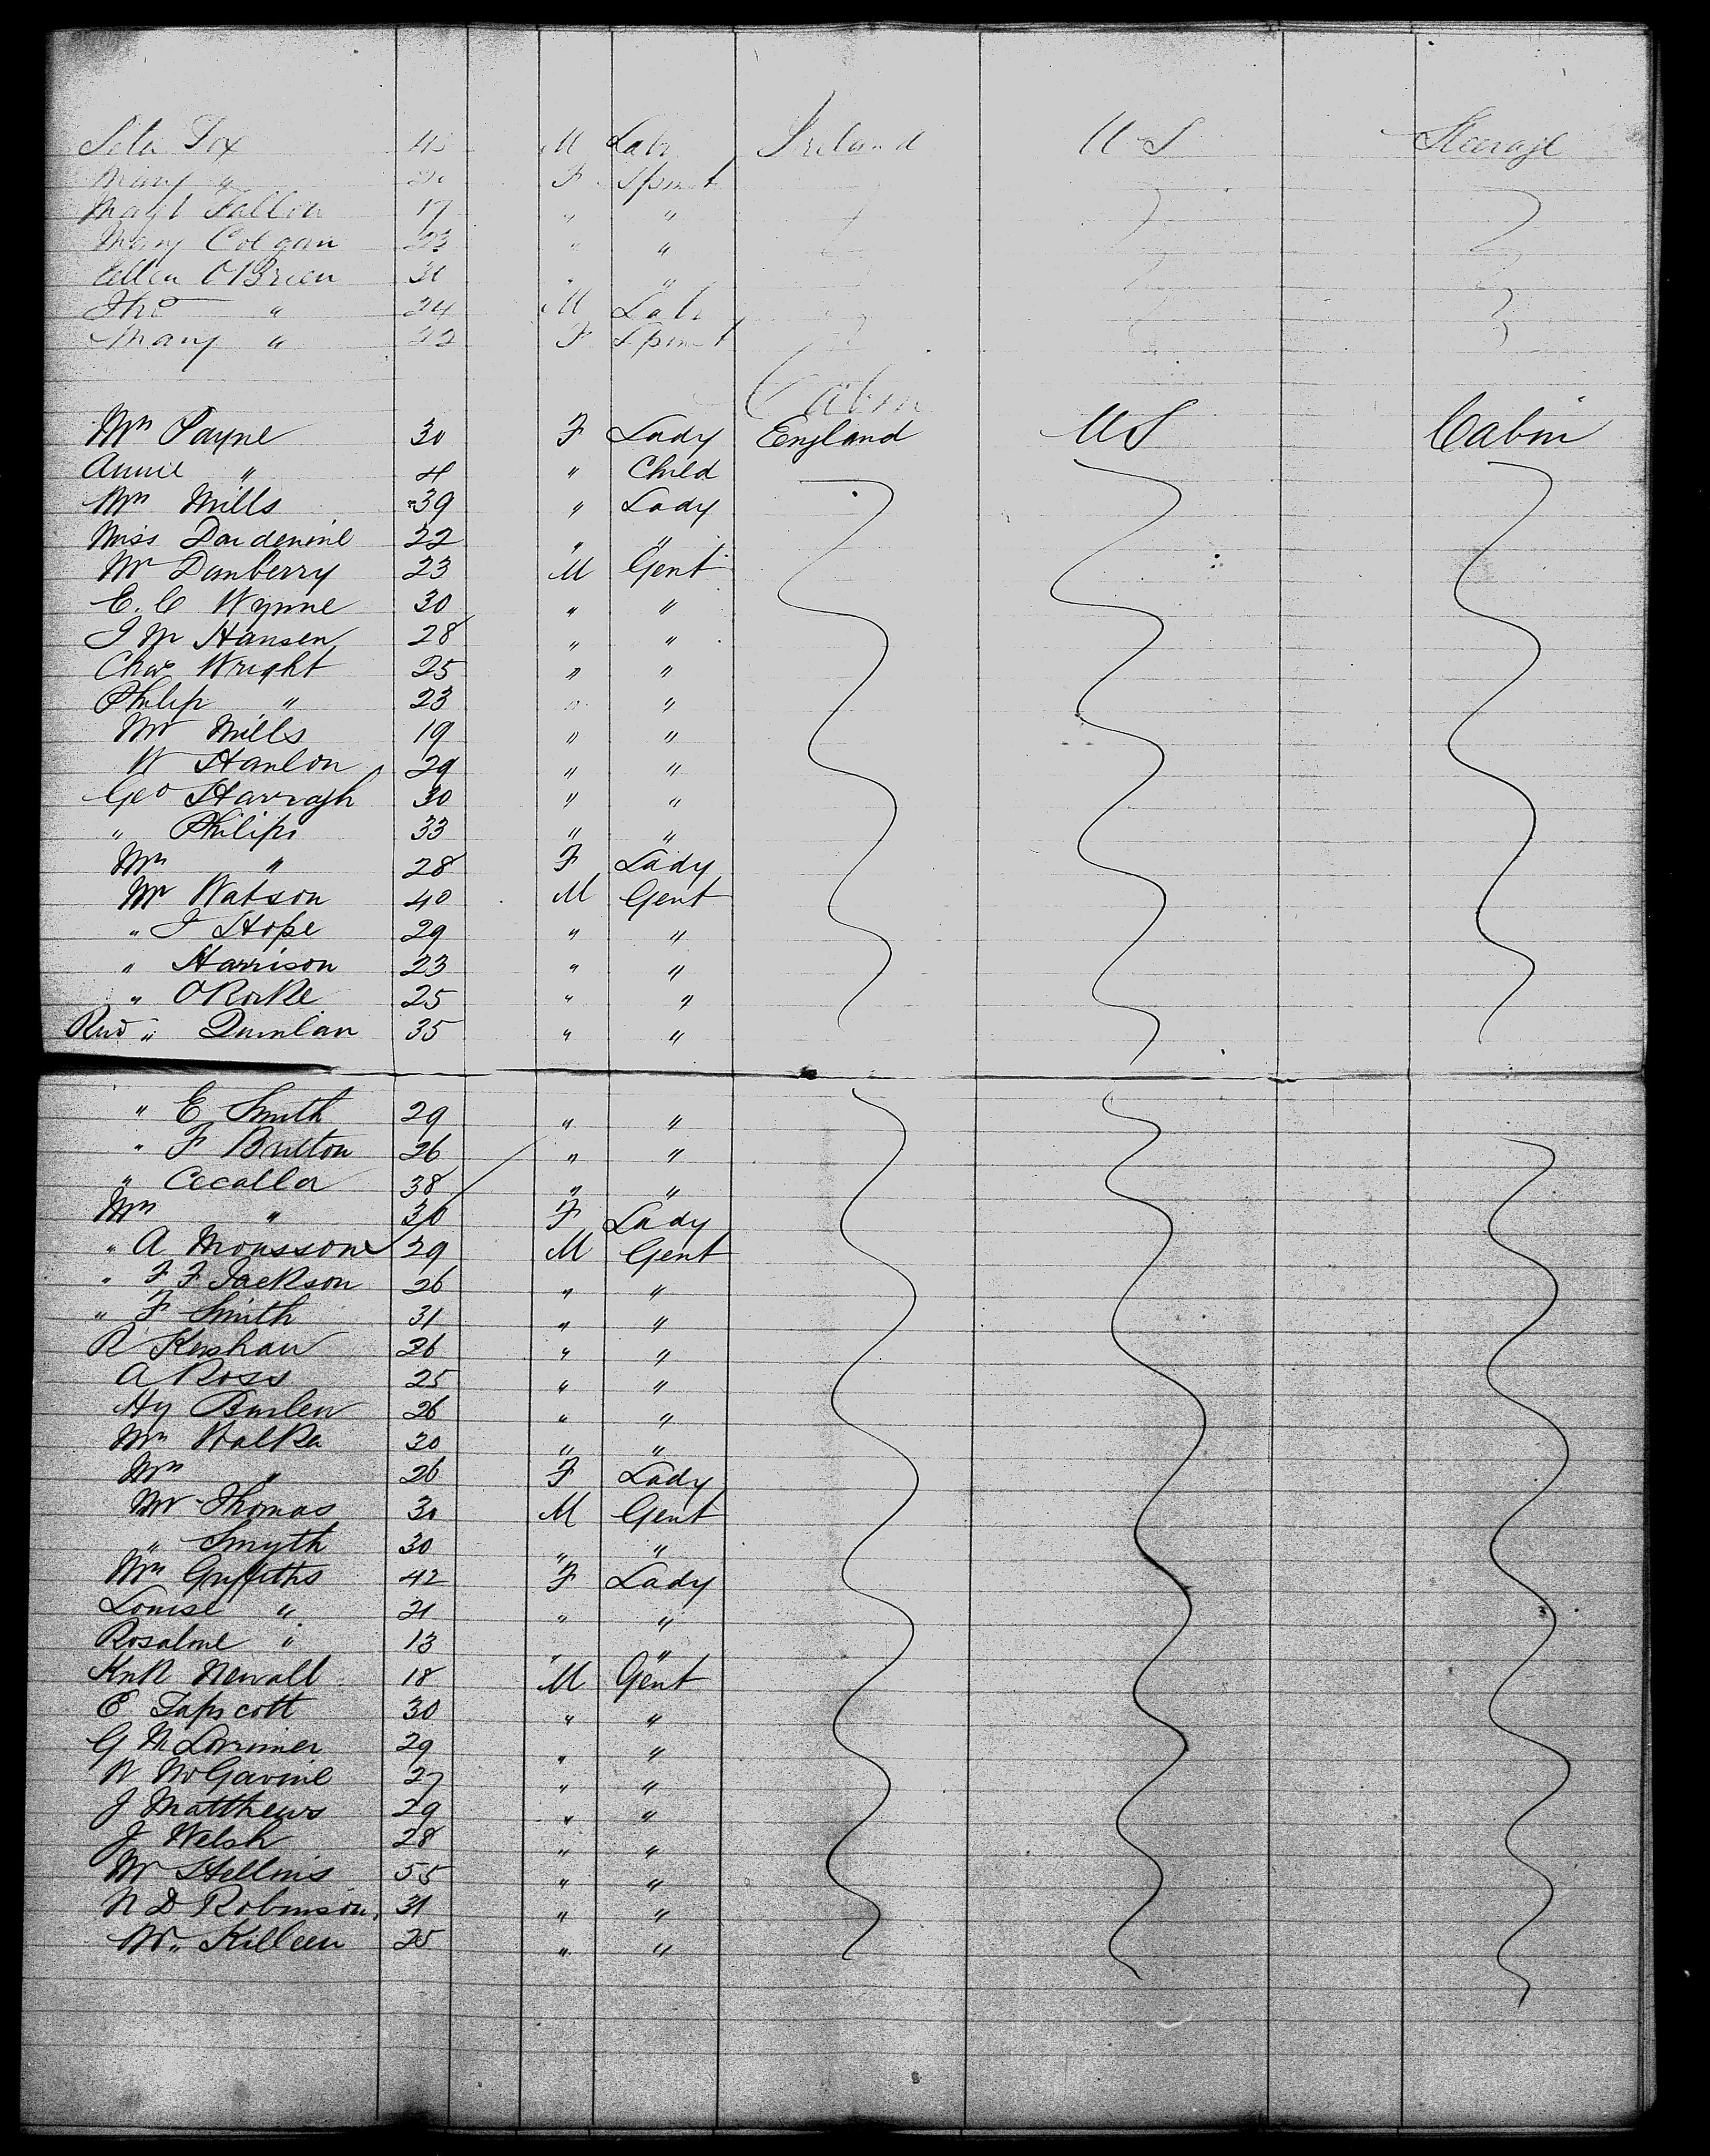 Fox M Labr Ireland US Steerage
Mary " F Spinst
Magt Fallon 17 " "
Mary Colgan 23 " "
Ellen OBrien 30 " "
Tho " 24 M Labr
Mary " 22 F Spinst
Cabin
Mrs Payne 30 F Lady England US Cabin
Annie " 4 " Child
Mrs Mills 39 " Lady
Miss 22 " "
Mr Danberry 23 M Gent
E. C Wynne 30 " "
J M Hansen 28 " "
Chas Wright 25 " "
Philip " 23 " "
Mr Mills 19 " "
W Hanlon 29 " "
Geo Harragh 30 " "
" Philips 33 " "
Mrs " 28 F Lady
Mr Watson 40 M Gent
" J Hope 29 " "
" Harrison 23 " "
" ORorke 25 " "
Revd " Quinlan 35 " "
" E Smith 29 " "
" F Britton 26 " "
" Cecalla 38 " "
Mrs " 30 F Lady
" A Monsson 29 M Gent
" F F Jackson 26 " "
" F Smith 31 " "
R Kershaw 26 " "
A Ross 25 " "
Hy 26 " "
Mr Walker 30 " "
Mrs " 26 F Lady
Mr Thomas 30 M Gent
" Smyth 30 " "
Mrs Griffiths 42 F Lady
Louise " 21 " "
Rosaline " 13 " "
Newall 18 M Gent
E Tapscott 30 " "
G M Lorrimer 29 " "
W McGavine 27 " "
J Matthews 29 " "
J Welsh 28 " "
Mr Hellins 55 " "
N D Robinson 31 " "
M " Killeen 25 " "